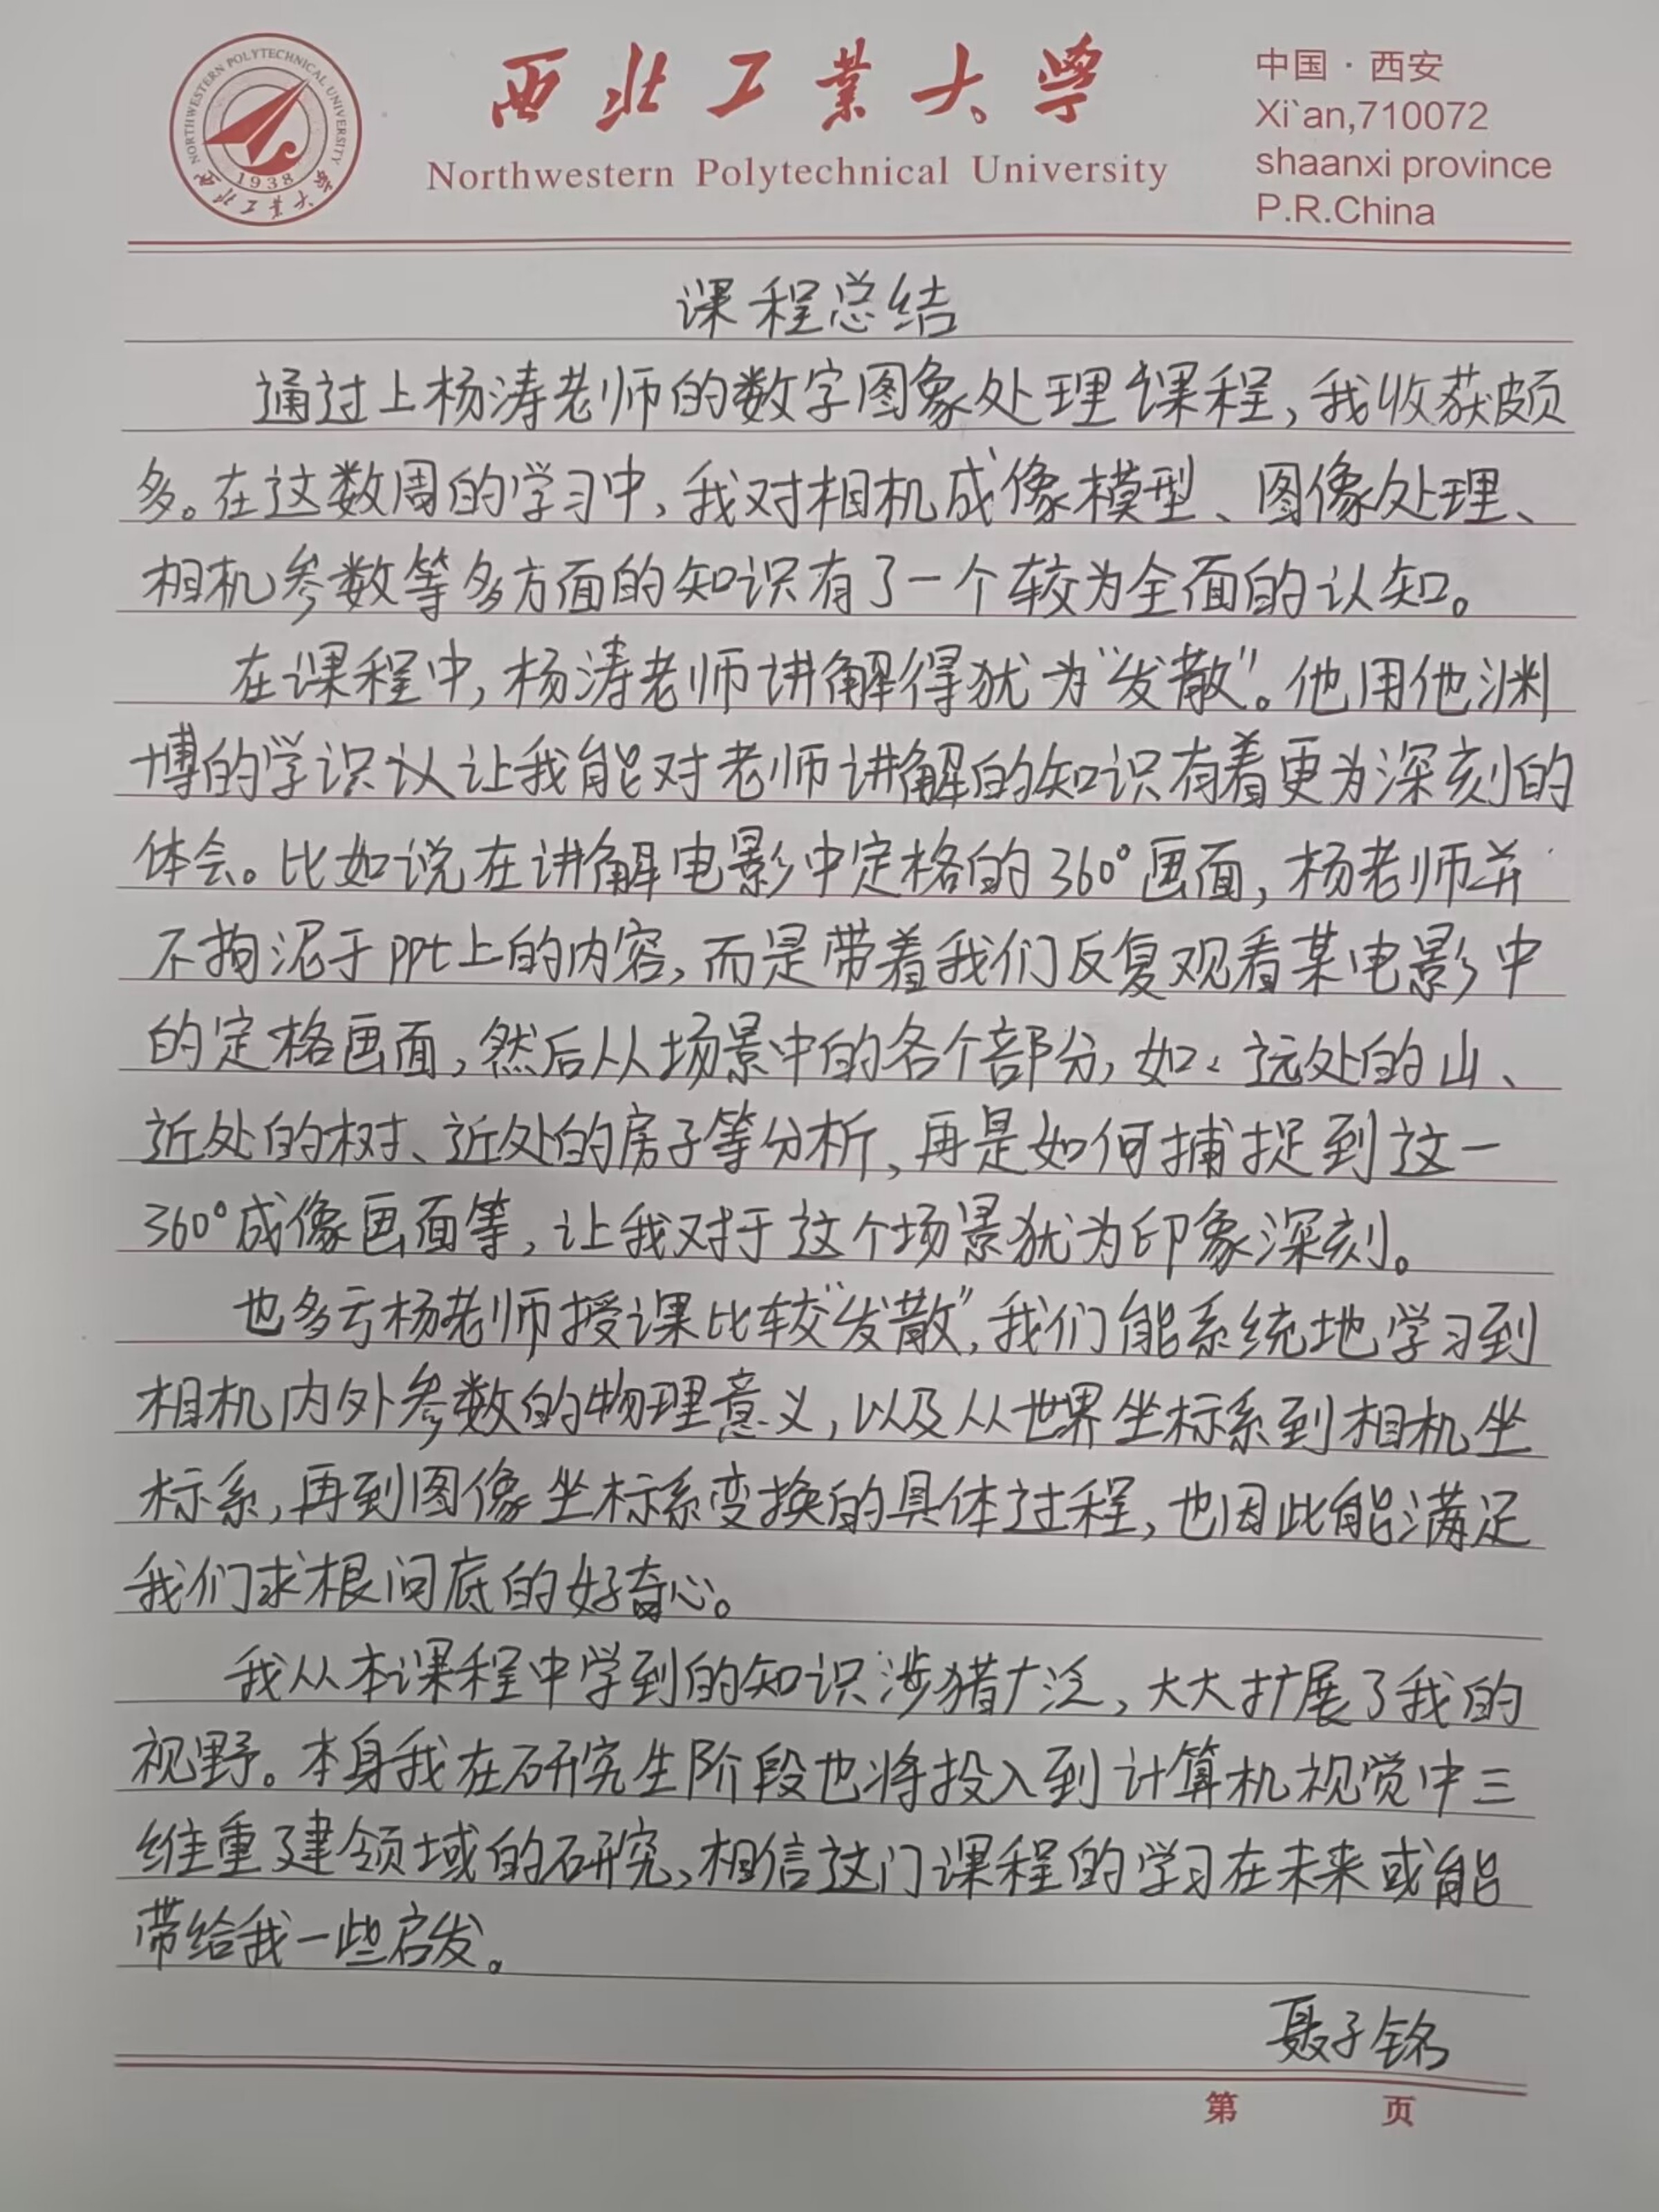 NORTHWESTERN POLYTECHNICAL UNIVERSITY
1938
西北工业大学
西北工業大学
Northwestern Polytechnical University
中国·西安
Xi`an,710072
shaanxi province
P.R.China
课程总结
通过上杨涛老师的数字图象处理课程,我收获颇
多。在这数周的学习中,我对相机成像模型、图像处理、
相机参数等多方面的知识有了一个较为全面的认知。
在课程中,杨涛老师讲解得犹为“发散”。他用他渊
博的学识以让我能对老师讲解的知识有着更为深刻的
体会。比如说在讲解电影中定格的360°画面,杨老师并
不拘泥于ppt上的内容,而是带着我们反复观看某电影中
的定格画面,然后从场景中的各个部分,如:远处的山、
近处的树、近处的房子等分析,再是如何捕捉到这一
360°成像画面等,让我对于这个场景犹为印象深刻。
也多亏杨老师授课比较“发散”,我们能系统地学习到
相机内外参数的物理意义,以及从世界坐标系到相机坐
标系,再到图像坐标系变换的具体过程,也因此能满足
我们求根问底的好奇心。
我从本课程中学到的知识涉猎广泛,大大扩展了我的
视野。本身我在研究生阶段也将投入到计算机视觉中三
维重建领域的研究,相信这门课程的学习在未来或能
带给我一些启发。
聂子铭
第 页